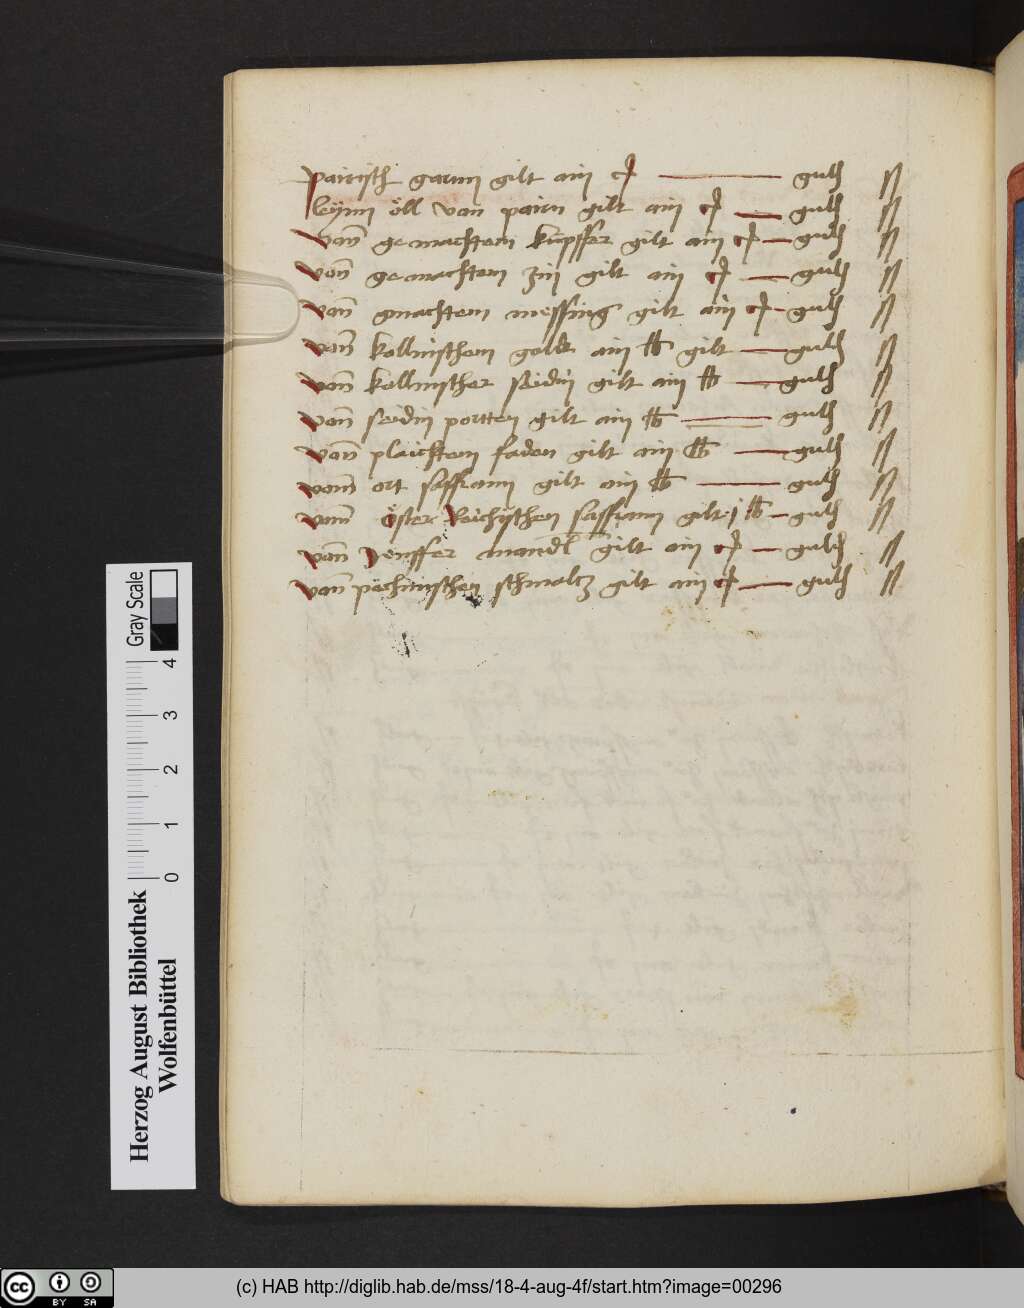 Pairisch garnn gilt ain c — guld
leynn öll von pairn gilt ain c — guld
Vonn gemachtem kupffer gilt ain c — guld
Vonn gemachtem zin gilt ain c — guld
Vonn gmachtem messing gilt ain c — guld
Vonn kollnischem gold ain ℔ gilt — guld
Vonn kollnischer seidin gilt ain ℔ — guld
Vonn seidin portten gilt ain ℔ — guld
Vonn plaichtem faden gilt ain ℔ — guld
Vonn ort saffrann gilt ain ℔ — guld
Vonn Öster Reichischen saffrann gilt j ℔ — guld
Vonn mandl gilt ain c — guld
Vonn pechmischen schmaltz gilt ain c — guld
Herzog August Bibliothek
Wolfenbüttel
0 1 2 3 4
Gray Scale
cc BY SA
(c) HAB http://diglib.hab.de/mss/18-4-aug-4f/start.htm?image=00296